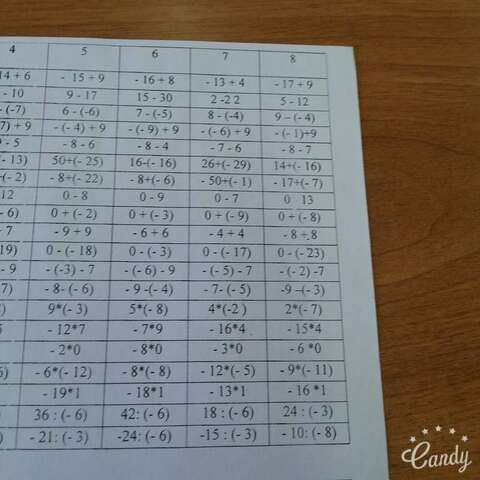 4 5 6 7 8
14 + 6 - 15 + 9 - 16 + 8 - 13 + 4 - 17 + 9
- 10 9 - 17 15 - 30 2 -2 2 5 - 12
-(-7) 6 - (-6) 7 - (-5) 8 - (-4) 9 – (- 4)
7) + 9 - (- 4) + 9 - (- 9) + 9 - (- 6) + 9 - (- 1)+9
- 5 - 8 - 6 - 8 - 4 - 7 - 6 - 8 - 7
(- 13) 50+(- 25) 16-(- 16) 26+(- 29) 14+(- 16)
+(- 2) - 8+(- 22) - 8+(- 6) - 50+(- 1) - 17+(- 7)
12 0 - 8 0 - 9 0 - 7 0 13
- 6) 0 + (- 2) 0 + (- 3) 0 + (- 9) 0 + (- 8)
+ 7 - 9 + 9 - 6 + 6 - 4 + 4 - 8 + 8
19) 0 - (- 18) 0 - (- 3) 0 - (- 17) 0 - (- 23)
- 9 - (-3) - 7 - (- 6) - 9 - (- 5) - 7 - (- 2) -7
- 8- (- 6) - 9 -(- 4) - 7- (- 5) -9 –(- 3)
) 9*(- 3) 5*(- 8) 4*(-2 ) 2*(- 7)
5 - 12*7 - 7*9 - 16*4 - 15*4
- 2*0 - 8*0 - 3*0 - 6 *0
) - 6*(- 12) - 8*(- 8) - 12*(- 5) - 9*(- 11)
- 19*1 - 18*1 - 13*1 - 16 *1
) 36 : (- 6) 42: (- 6) 18 : (- 6) 24 : (- 3)
) - 21: (- 3) -24: (- 6) -15 : (- 3) - 10: (- 8)
Candy